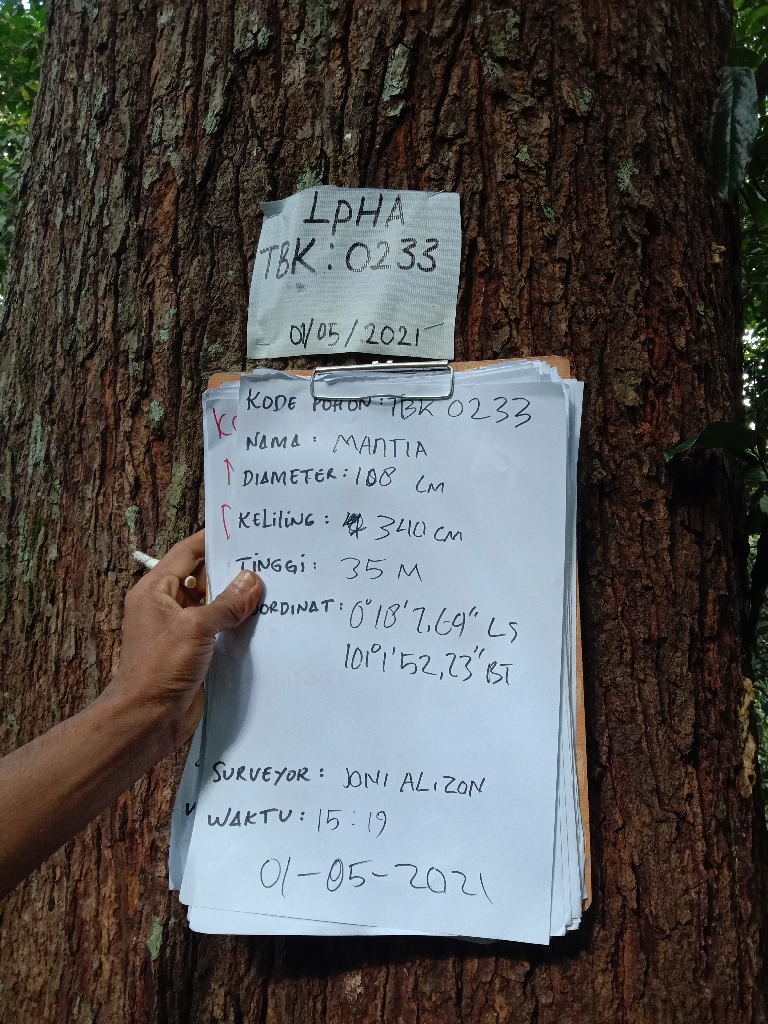 LPHA
TBK : 0233
01/05/2021
KODE POHON : TBK 0233
NAMA : MANTIA
DIAMETER : 108 CM
KELILING : 340 CM
TINGGI : 35 M
OORDINAT : 0°18'7,69" LS
101°1'52,23" BT
SURVEYOR : JONI ALIZON
WAKTU : 15:19
01-05-2021